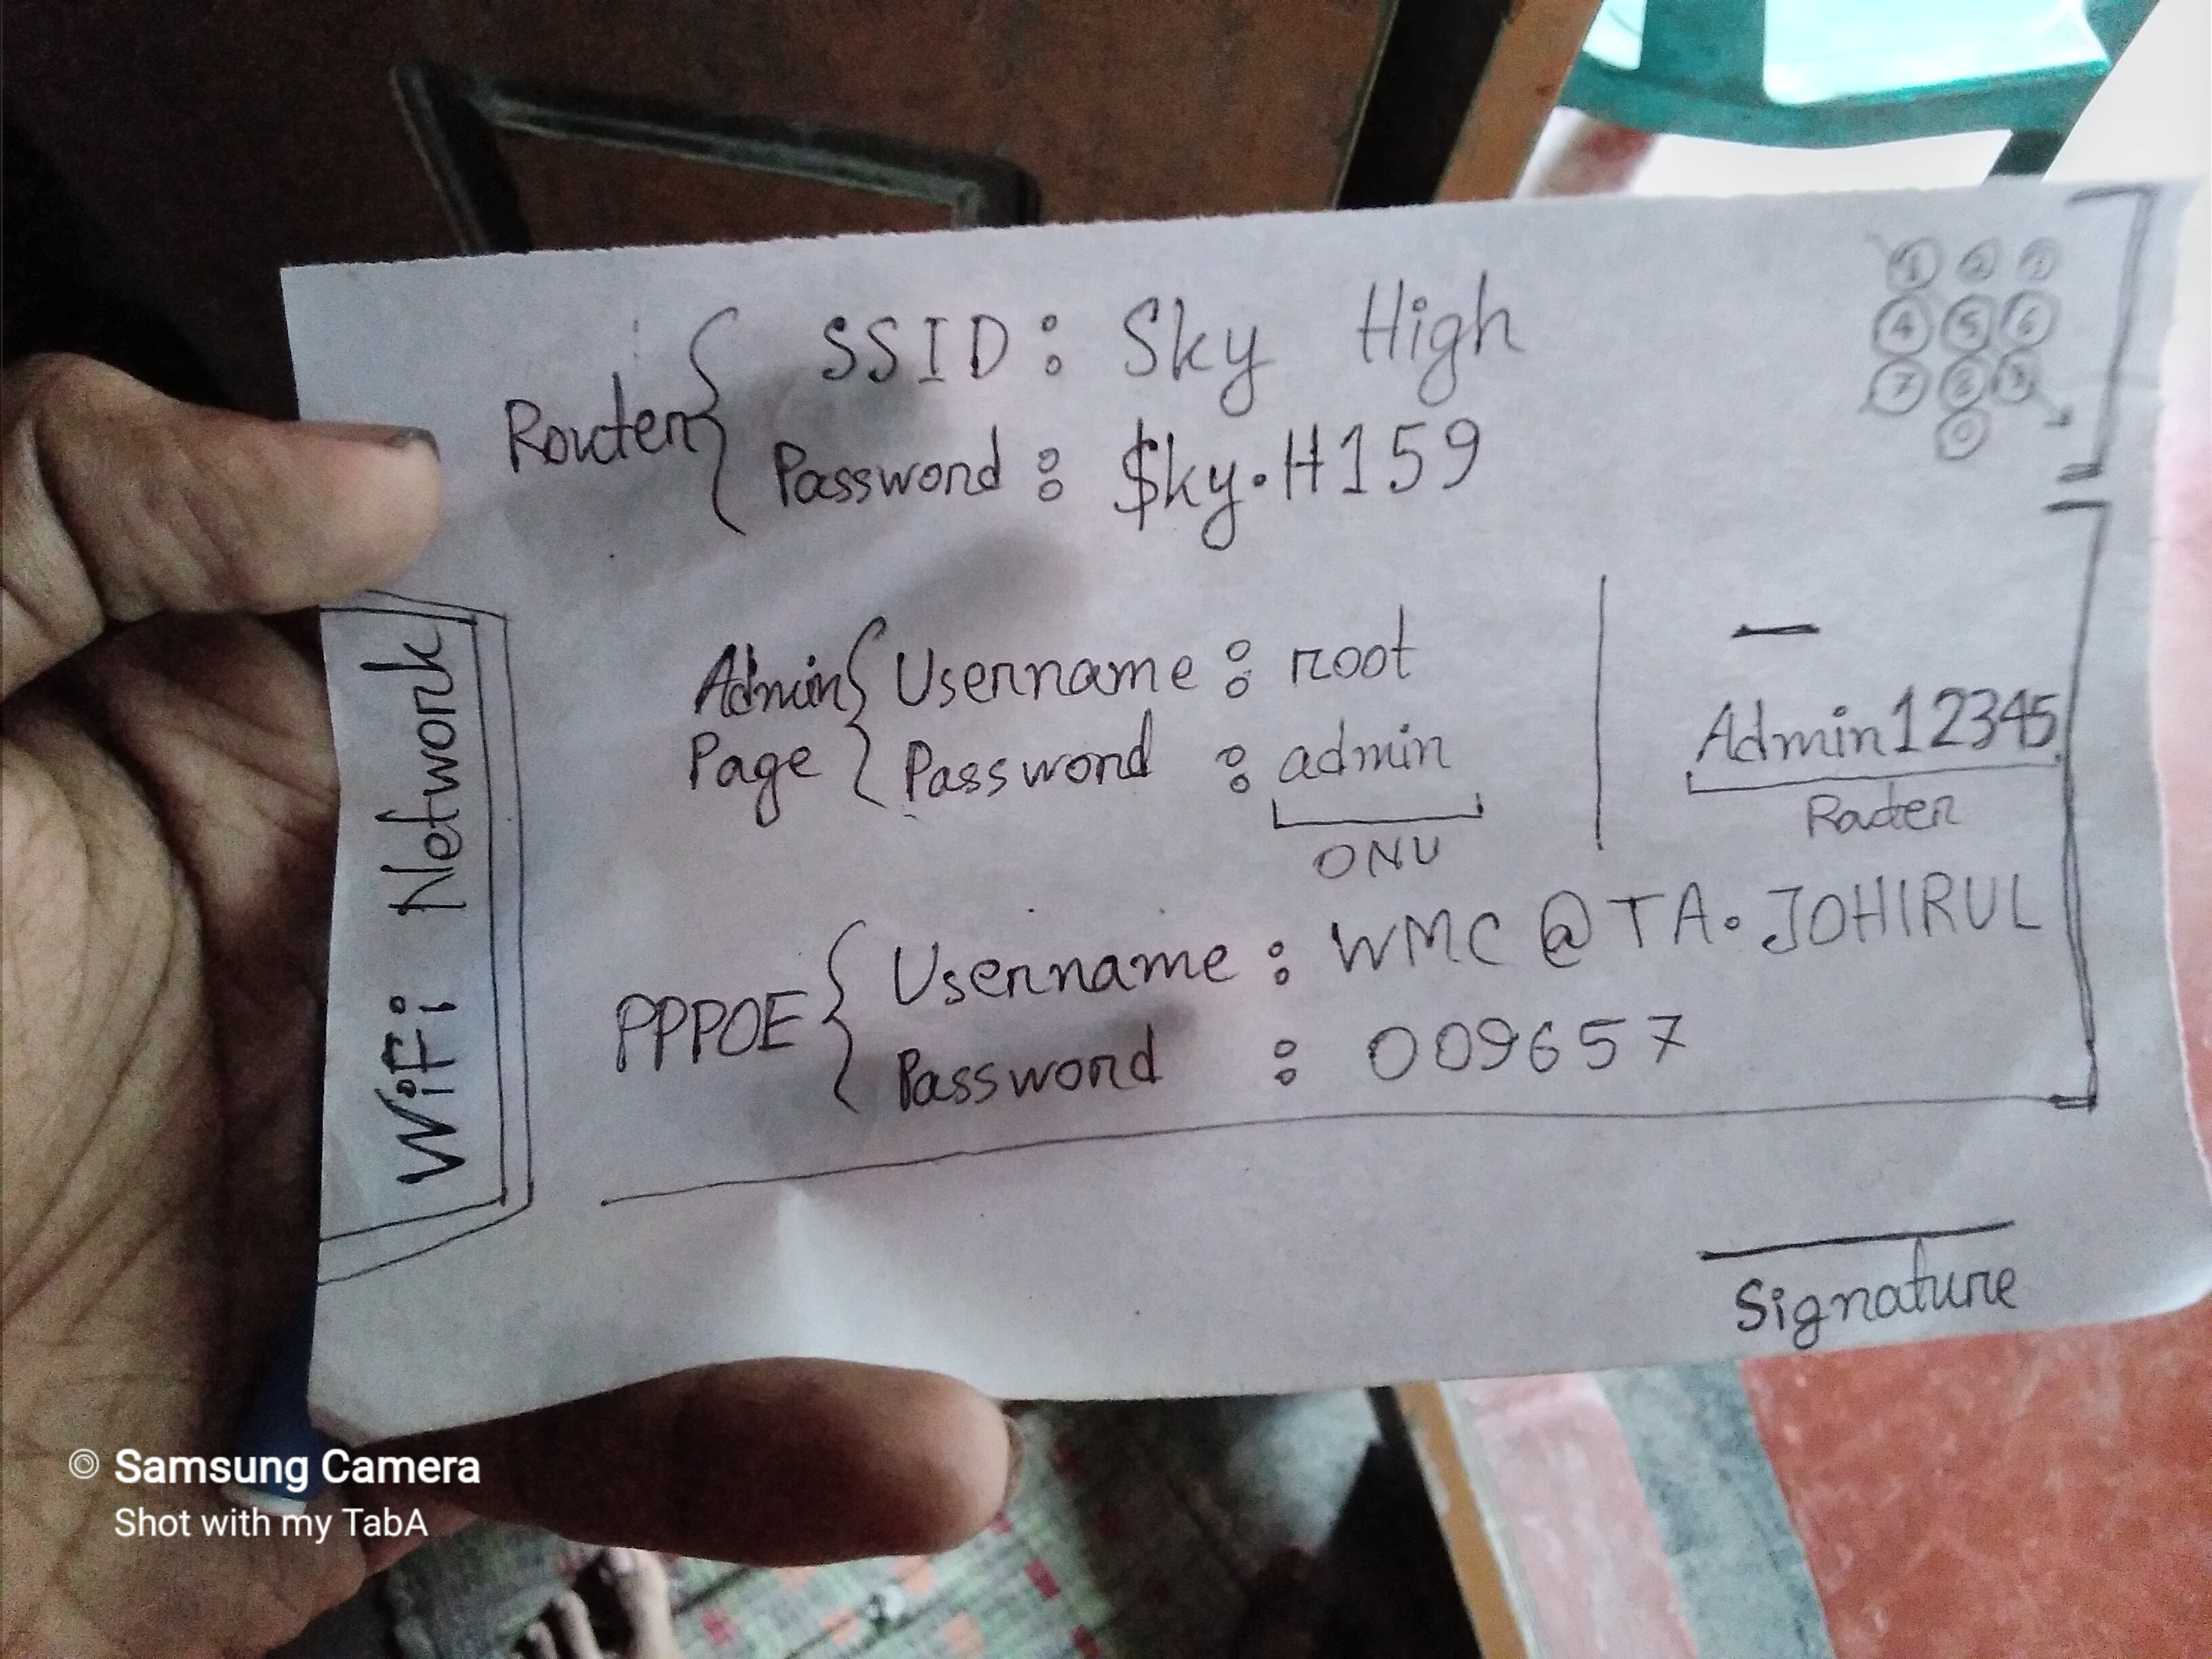 WiFi Network
Router { SSID : Sky High
Password : $ky.H159
1 2 3
4 5 6
7 8 9
0
Admin Page { Username : root | —
Password : admin | Admin12345
ONU Router
PPPOE { Username : WMC@TA.JOHIRUL
Password : 009657
Signature
Samsung Camera
Shot with my TabA